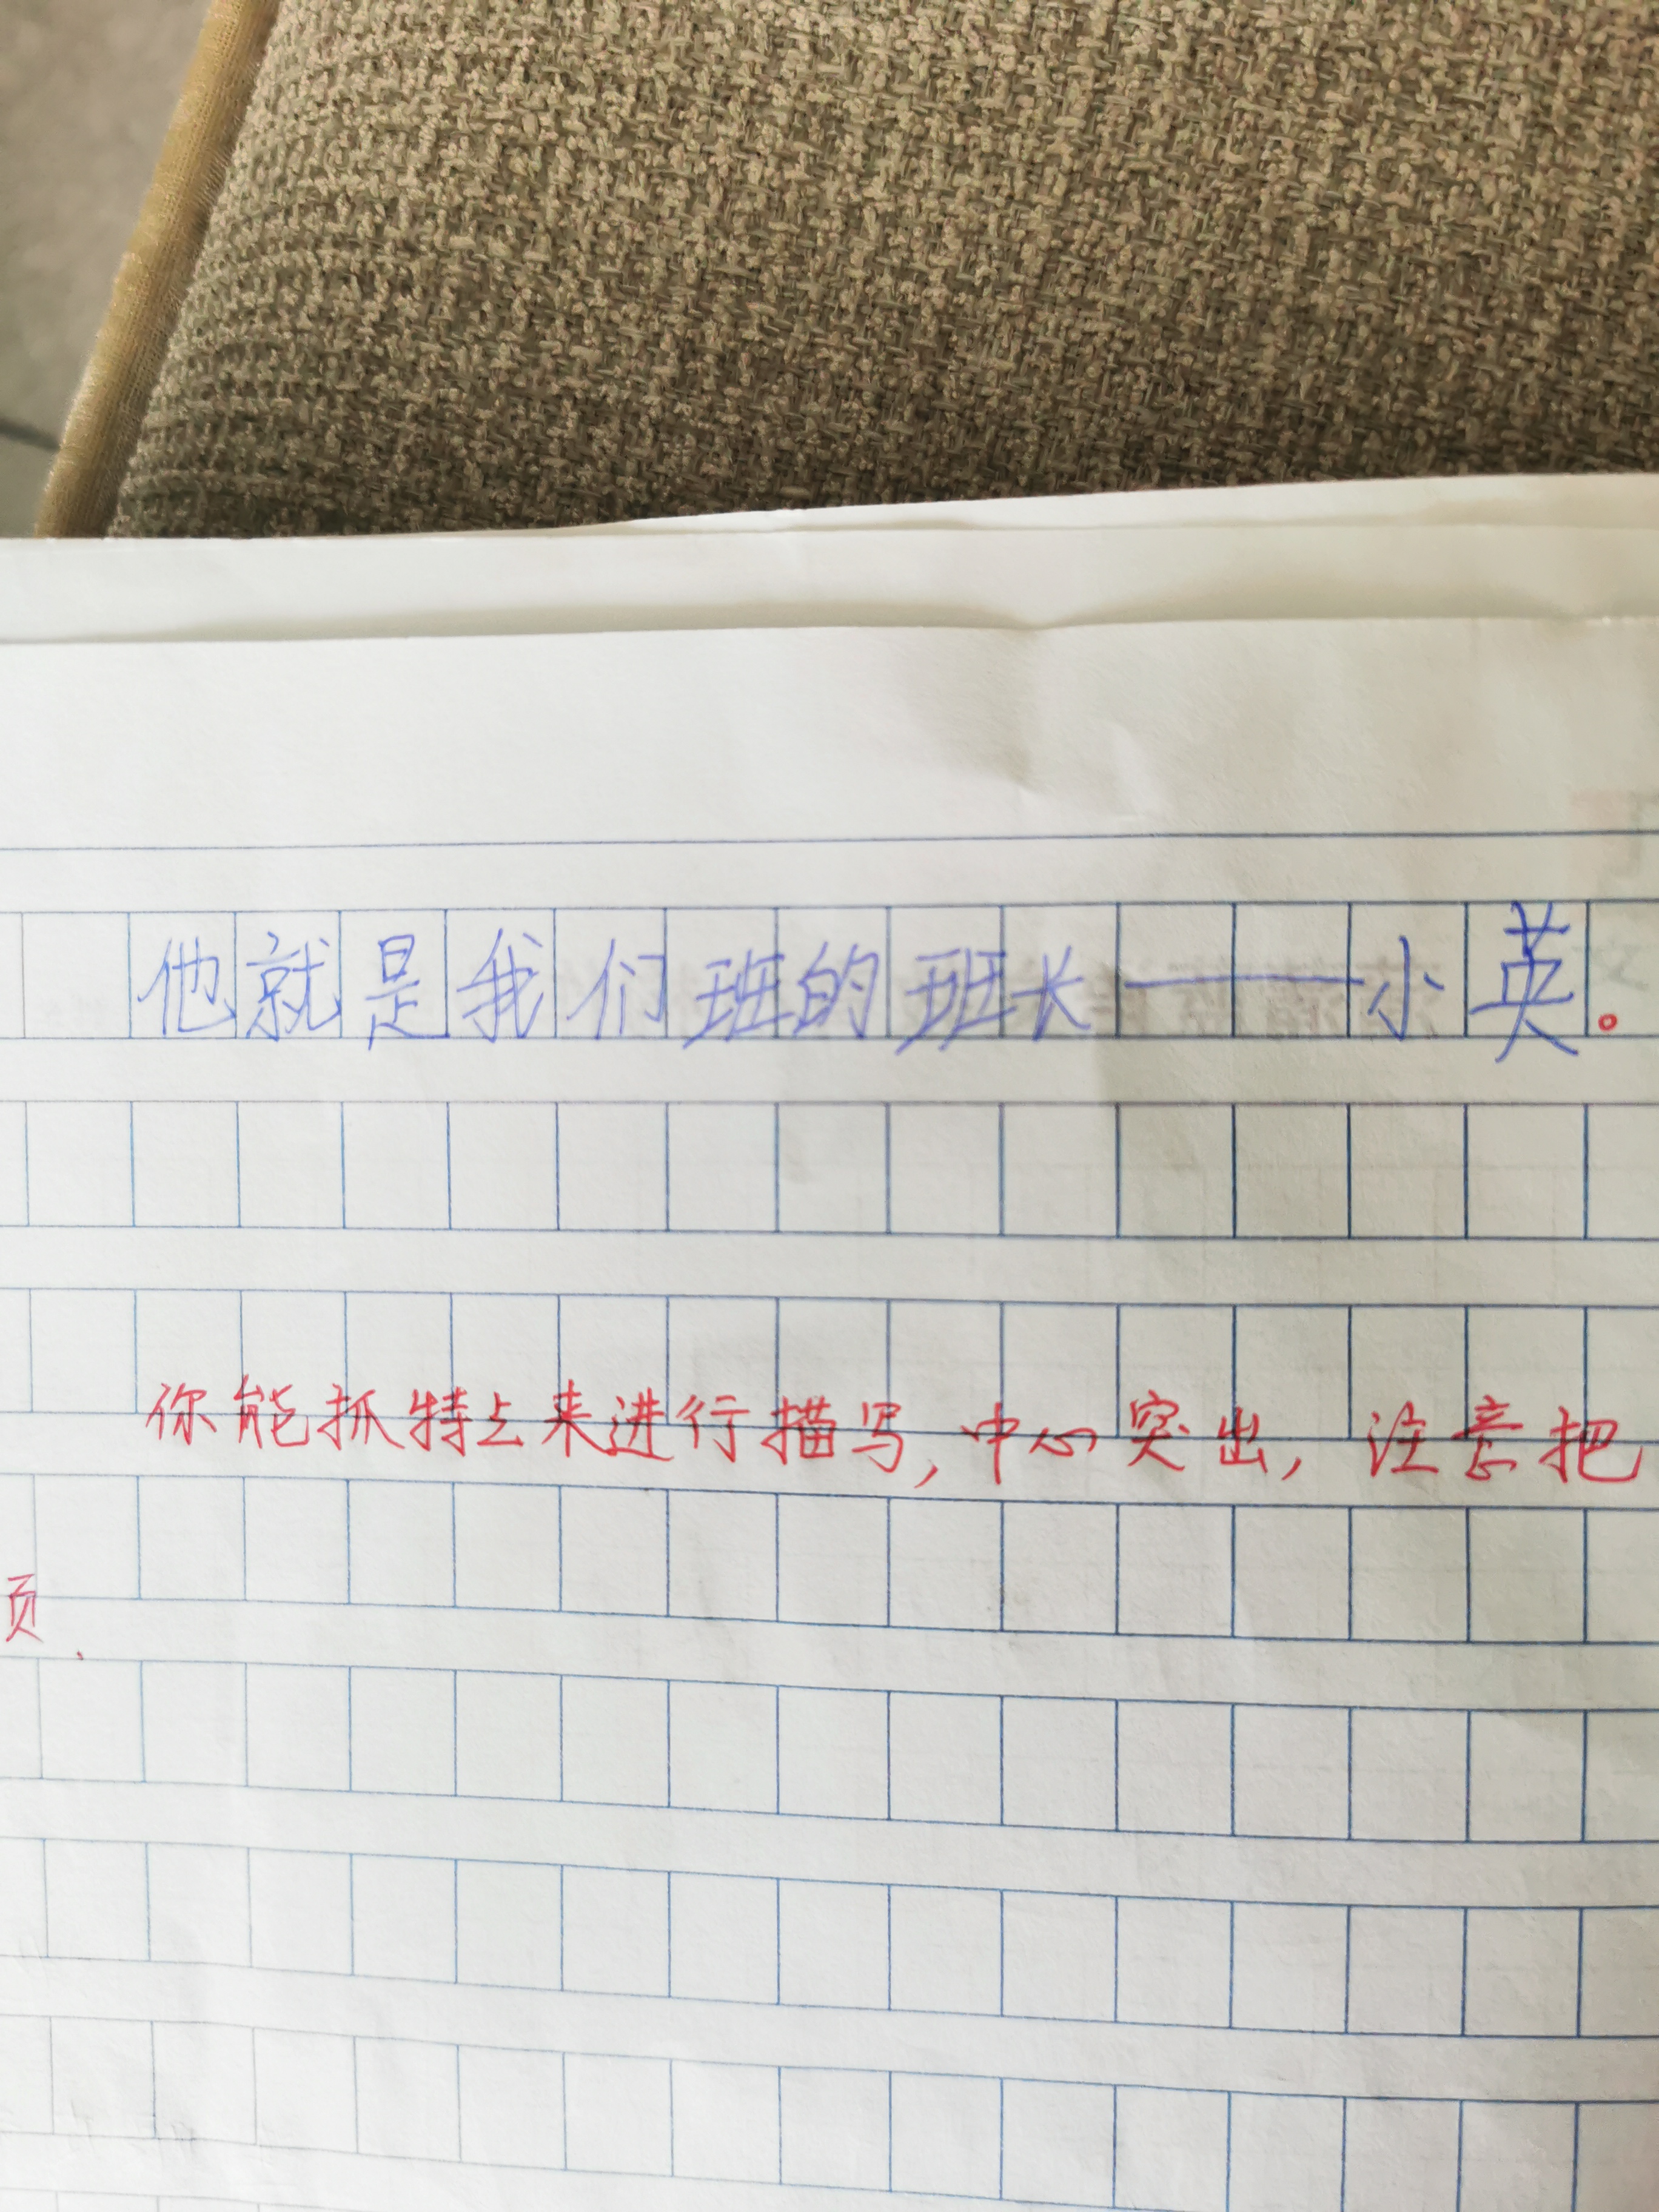 他就是我们班的班长——小英。
你能抓特点来进行描写，中心突出，注意把
页